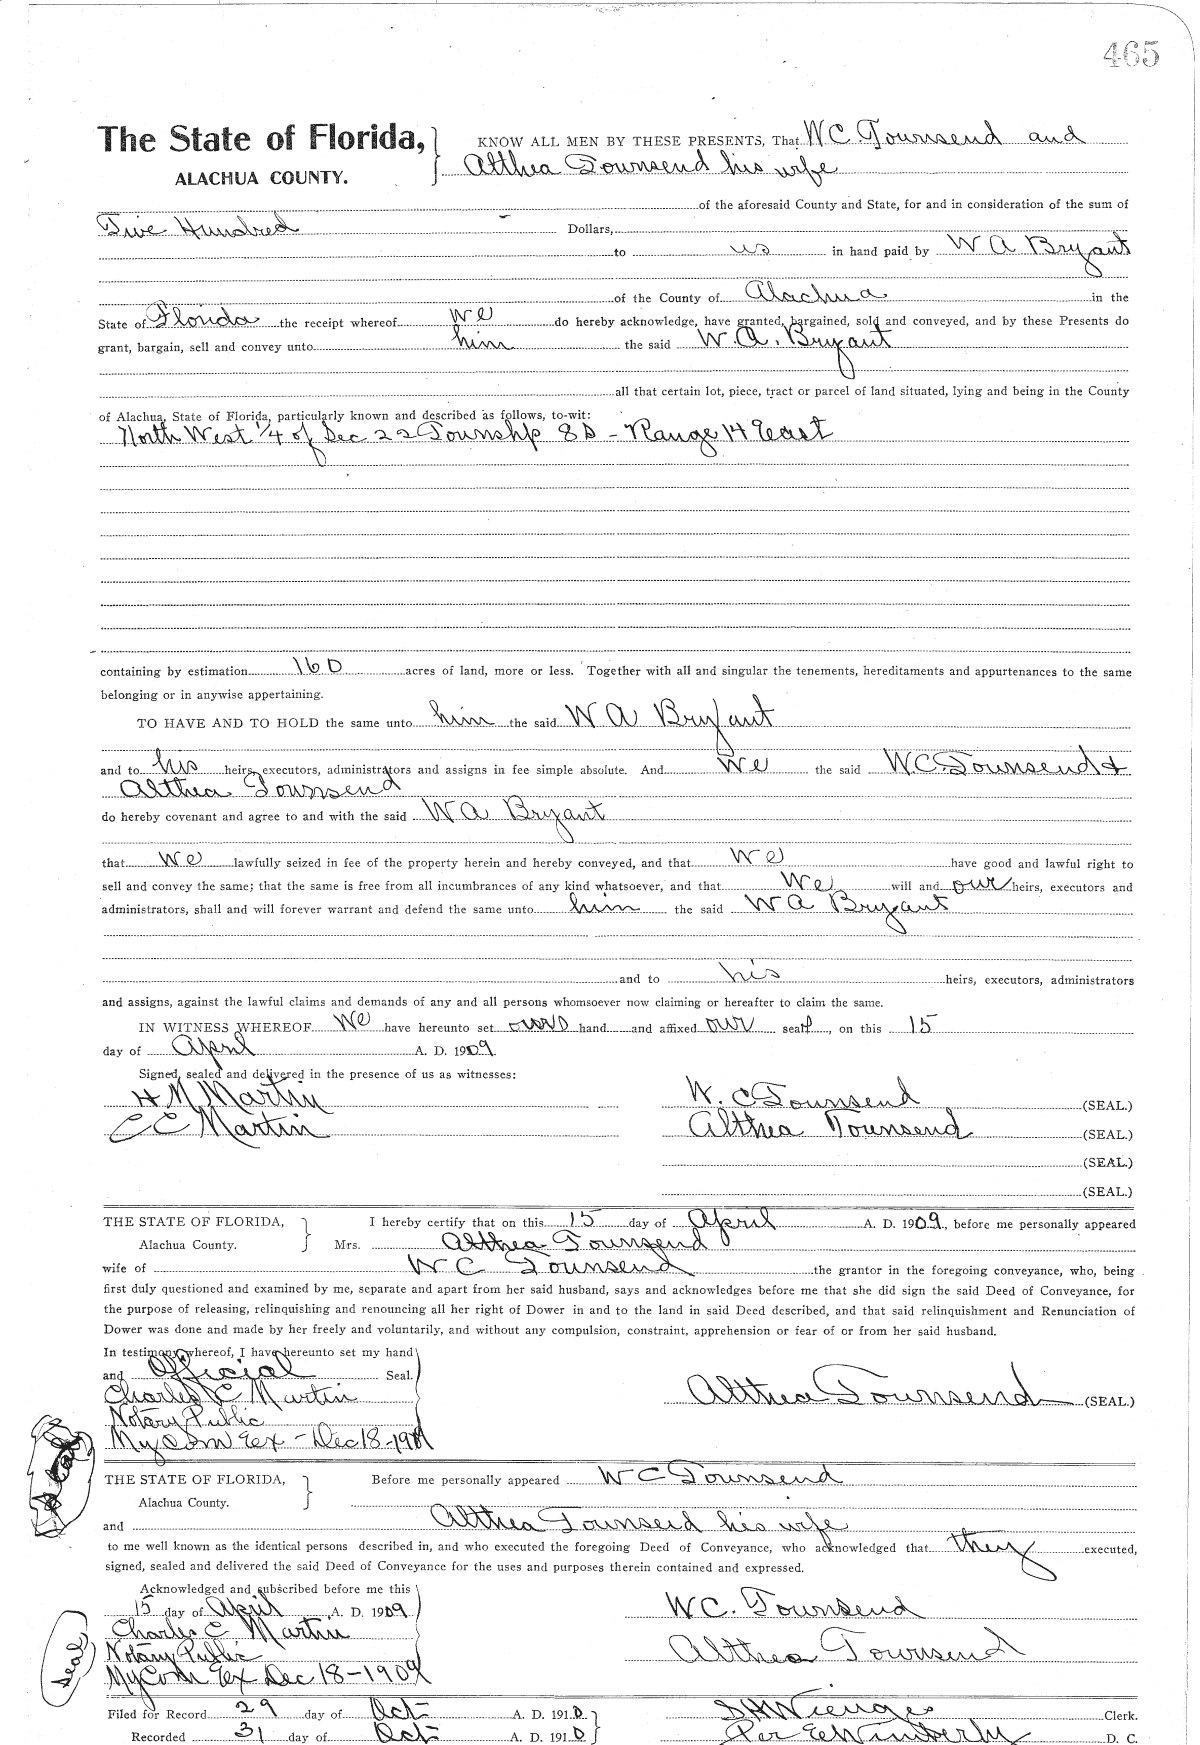 465
The State of Florida, KNOW ALL MEN BY THESE PRESENTS, That W.C. Townsend and
ALACHUA COUNTY. Althea Townsend his wife
of the aforesaid County and State, for and in consideration of the sum of
Five Hundred Dollars,
to us in hand paid by W A Bryant
of the County of Alachua in the
State of Florida the receipt whereof we do hereby acknowledge, have granted, bargained, sold and conveyed, and by these Presents do
grant, bargain, sell and convey unto him the said W.A. Bryant
all that certain lot, piece, tract or parcel of land situated, lying and being in the County
of Alachua, State of Florida, particularly known and described as follows, to-wit:
North West 1/4 of Sec 22 Township 8 S - Range 14 East
containing by estimation 160 acres of land, more or less. Together with all and singular the tenements, hereditaments and appurtenances to the same
belonging or in anywise appertaining.
TO HAVE AND TO HOLD the same unto him the said W A Bryant
and to his heirs, executors, administrators and assigns in fee simple absolute. And we the said W.C. Townsend &
Althea Townsend
do hereby covenant and agree to and with the said W A Bryant
that we lawfully seized in fee of the property herein and hereby conveyed, and that we have good and lawful right to
sell and convey the same; that the same is free from all incumbrances of any kind whatsoever, and that we will and our heirs, executors and
administrators, shall and will forever warrant and defend the same unto him the said W A Bryant
and to his heirs, executors, administrators
and assigns, against the lawful claims and demands of any and all persons whomsoever now claiming or hereafter to claim the same.
IN WITNESS WHEREOF We have hereunto set ours hand and affixed our seal, on this 15
day of April A. D. 1909
Signed, sealed and delivered in the presence of us as witnesses:
H M Martin W. C Townsend (SEAL.)
C C Martin Althea Townsend (SEAL.)
(SEAL.)
(SEAL.)
THE STATE OF FLORIDA, I hereby certify that on this 15 day of April A. D. 1909, before me personally appeared
Alachua County. Mrs. Althea Townsend
wife of W C Townsend the grantor in the foregoing conveyance, who, being
first duly questioned and examined by me, separate and apart from her said husband, says and acknowledges before me that she did sign the said Deed of Conveyance, for
the purpose of releasing, relinquishing and renouncing all her right of Dower in and to the land in said Deed described, and that said relinquishment and Renunciation of
Dower was done and made by her freely and voluntarily, and without any compulsion, constraint, apprehension or fear of or from her said husband.
In testimony whereof, I have hereunto set my hand
and Official Seal.
Charles C Martin Althea Townsend (SEAL.)
Notary Public
My Com Ex - Dec 18 - 1909
Seal
THE STATE OF FLORIDA, Before me personally appeared W C Townsend
Alachua County.
and Althea Townsend his wife
to me well known as the identical persons described in, and who executed the foregoing Deed of Conveyance, who acknowledged that they executed,
signed, sealed and delivered the said Deed of Conveyance for the uses and purposes therein contained and expressed.
Acknowledged and subscribed before me this
15 day of April A. D. 1909 W C. Townsend
Charles C Martin
Notary Public Althea Townsend
My Com Ex Dec 18 - 1909
Seal
Filed for Record 29 day of Oct A. D. 1910 S H Wienges Clerk.
Recorded 31 day of Oct A. D. 1910 Per E E Wimberly D. C.